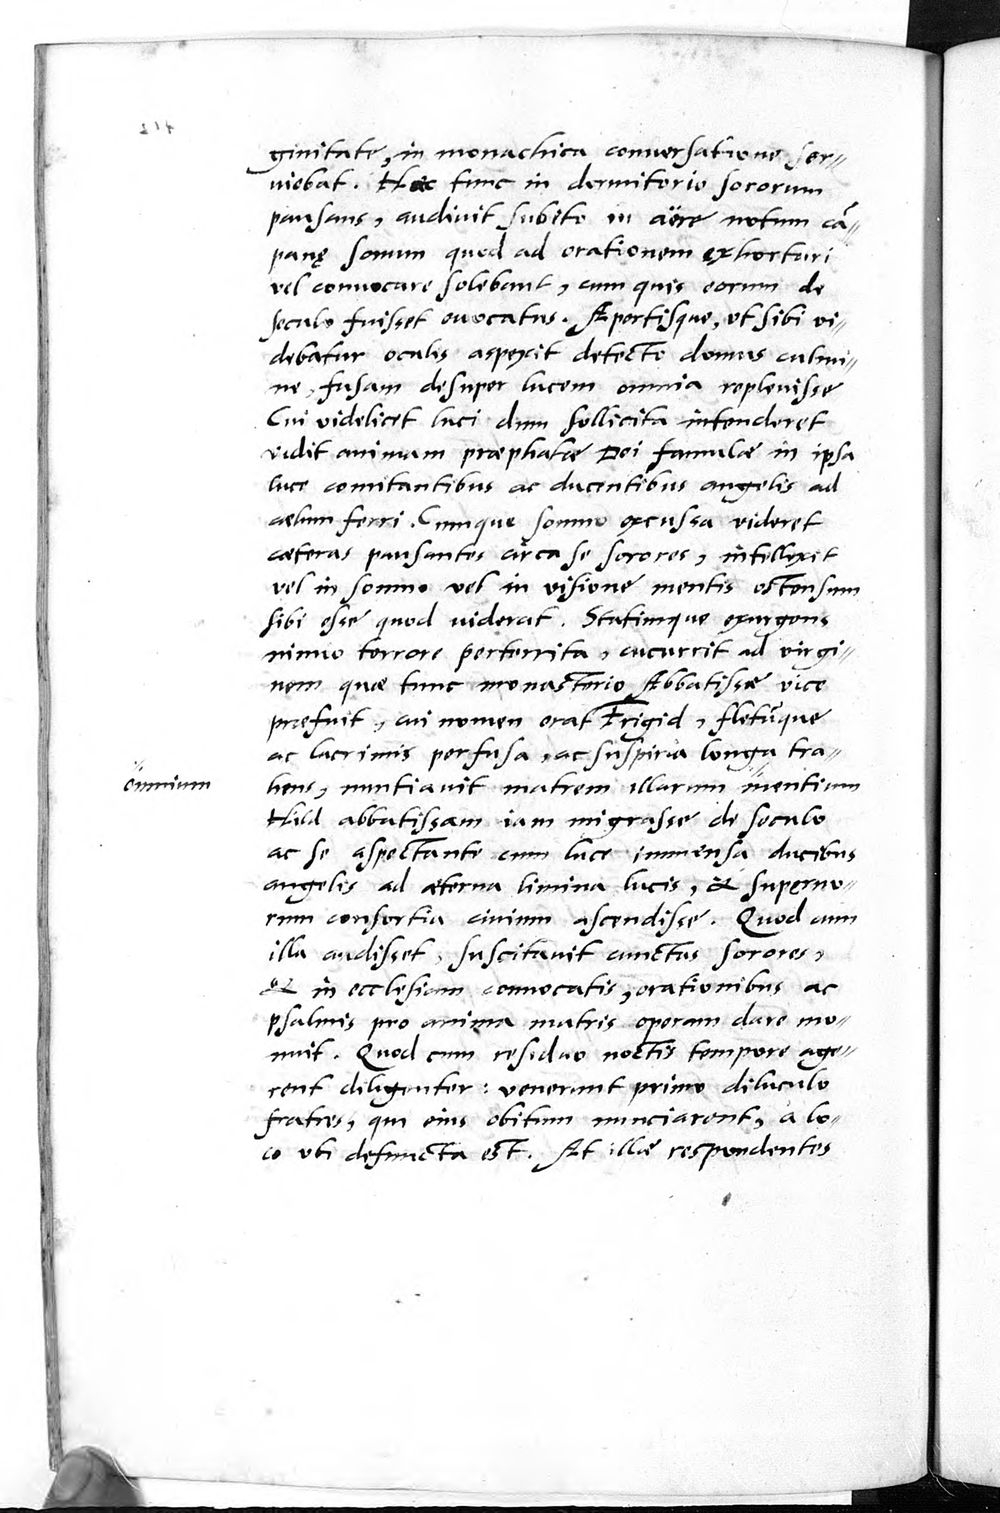 214
ginitate, in monachica conuersatione ser„
uiebat. Hæc tunc in dormitorio sororum
pausans, audiuit subito in aëre notum cā„
panę sonum quod ad orationem exhortari
vel conuocare solebant, cum quis eorum de
seculo fuisset euocatus. Apertisque, vt sibi vi„
debatur oculis aspexit detecto domus culmi„
ne, fusam desuper lucem omnia repleuisse
Cui videlicet luci dum sollicita intenderet
vidit animam præphatæ Dei famulæ in ipsa
luce comitantibus ac ducentibus angelis ad
cælum ferri. Cumque somno excussa videret
cæteras pausantes circa se sorores, intellexit
vel in somno vel in visione mentis ostensum
sibi esse quod viderat. Statimque exurgens
nimio terrore perterrita, cucurrit ad virgi„
nem quæ tunc monasterio Abbatissæ vice
præfuit, cui nomen erat Frigid, fletūque
ac lacrimis perfusa, ac suspiria longa tra„
hens, nuntiauit matrem illarum "mentium
"omnium
Hild abbatissam iam migrasse de seculo
ac se aspectante cum luce immensa ducibus
angelis ad æterna limina lucis, & superno„
rum consortia ciuium ascendisse. Quod cum
illa audisset, suscitauit cunctas sorores,
& in ecclesiam conuocatis, orationibus ac
psalmis pro anima matris operam dare mo„
nuit. Quod cum residuo noctis tempore age„
rent diligenter: venerunt primo diluculo
fratres, qui eius obitum nunciarent, a lo„
co vbi defuncta est. At illæ respondentes